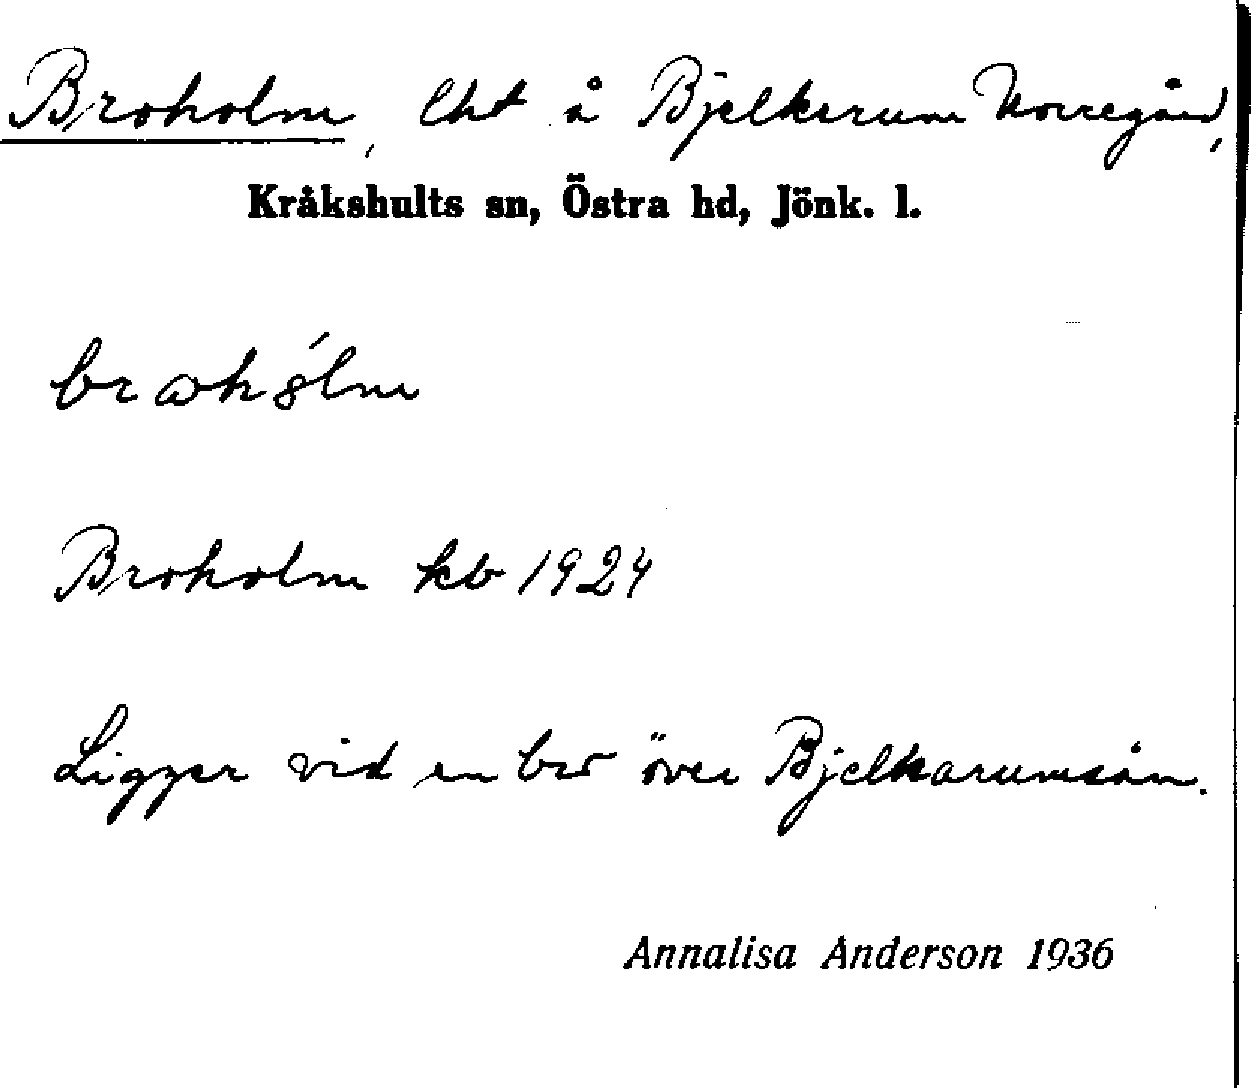 Broholm, lht å Bjelkerum Norregård,
Kråkshults sn, Östra hd, Jönk. l.
Broholm kb 1924
Ligger vid en bro över Bjelkarumsån.
Annalisa Anderson 1936